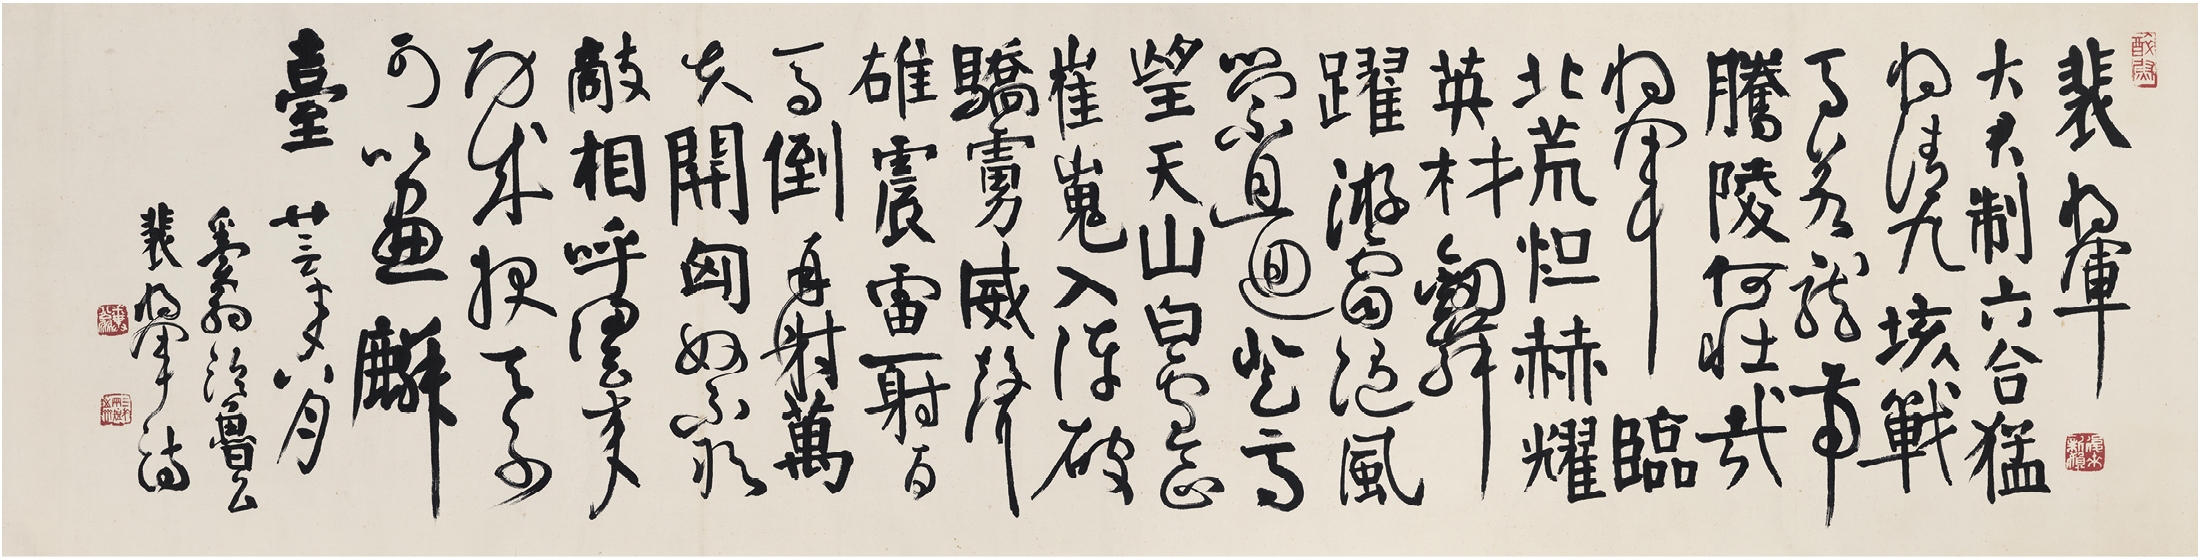 裴將軍
大君制六合猛
將清九垓戰
馬若龍虎
騰陵何壯哉
將軍臨
北荒烜赫耀
英材劍舞
躍游雷隨風
縈且迴登高
望天山白雲正
崔嵬入陣破
驕虜威聲
雄震雷一射百
馬倒再射萬
夫開匈奴不敢
敵相呼歸去来
功成報天子
可以畫麟
臺 廿三年八月
翁臨魯公
裴將軍詩